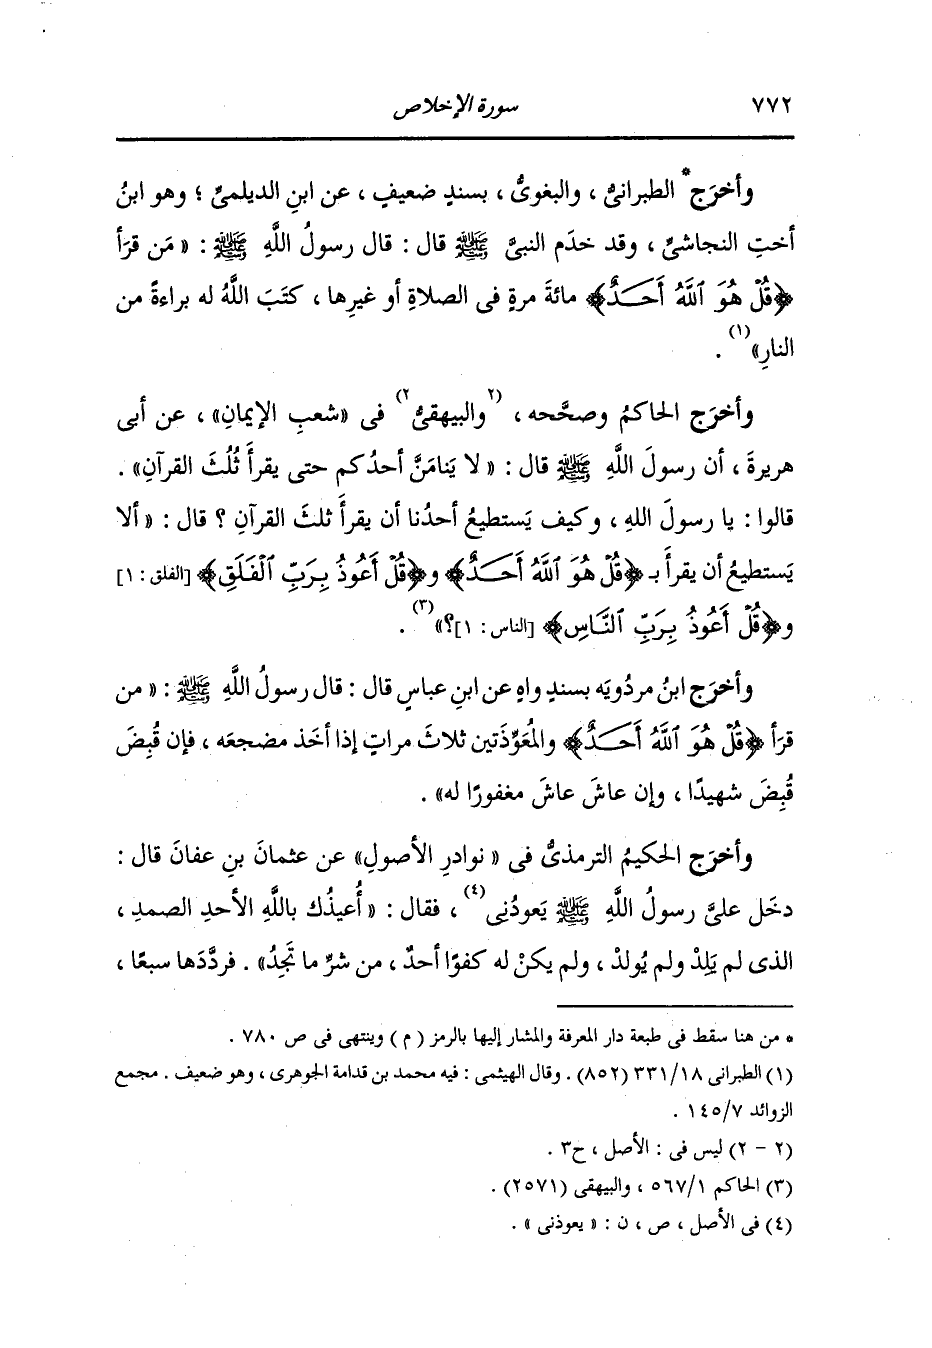 ٧٧٢ سورة الإخلاص
وأخرَج* الطبرانىُّ ، والبغوىُّ ، بسندٍ ضعيفٍ ، عن ابنِ الديلمىِّ ؛ وهو ابنُ
أختِ النجاشىِّ ، وقد خدَم النبىَّ ﷺ قال : قال رسولُ اللَّهِ ﷺ : « مَن قرَأ
﴿قُلْ هُوَ ٱللَّهُ أَحَدٌ﴾ مائةَ مرةٍ فى الصلاةِ أو غيرِها ، كتَبَ اللَّهُ له براءةً من
النارِ»(١) .
وأخرَج الحاكمُ وصحَّحه ، (٢والبيهقىُّ٢) فى «شعبِ الإيمانِ» ، عن أبى
هريرةَ ، أن رسولَ اللَّهِ ﷺ قال : « لا يَنامَنَّ أحدُكم حتى يقرأَ ثُلُثَ القرآنِ» .
قالوا : يا رسولَ اللهِ ، وكيف يَستطيعُ أحدُنا أن يقرأَ ثلثَ القرآنِ ؟ قال : « ألا
يَستطيعُ أن يقرأَ بـ ﴿قُلْ هُوَ ٱللَّهُ أَحَدٌ﴾ و﴿قُلْ أَعُوذُ بِرَبِّ ٱلْفَلَقِ﴾ [الفلق : ١]
و﴿قُلْ أَعُوذُ بِرَبِّ ٱلنَّاسِ﴾ [الناس : ١]؟»(٣) .
وأخرَج ابنُ مردُويَه بسندٍ واهٍ عن ابنِ عباسٍ قال : قال رسولُ اللَّهِ ﷺ : « من
قرَأ ﴿قُلْ هُوَ ٱللَّهُ أَحَدٌ﴾ والمُعَوِّذَتين ثلاثَ مراتٍ إذا أخَذ مضجعَه ، فإن قُبِضَ
قُبِضَ شهيدًا ، وإن عاشَ عاشَ مغفورًا له» .
وأخرَج الحكيمُ الترمذىُّ فى « نوادرِ الأصولِ» عن عثمانَ بنِ عفانَ قال :
دخَل علىَّ رسولُ اللَّهِ ﷺ يَعودُنِى(٤) ، فقال : « أُعيذُك باللَّهِ الأحدِ الصمدِ ،
الذى لم يَلِدْ ولم يُولدْ ، ولم يكنْ له كفوًا أحدٌ ، من شرِّ ما تَجِدُ» . فردَّدَها سبعًا ،
* من هنا سقط فى طبعة دار المعرفة والمشار إليها بالرمز ( م ) وينتهى فى ص ٧٨٠ .
(١) الطبرانى ٣٣١/١٨ (٨٥٢) . وقال الهيثمى : فيه محمد بن قدامة الجوهرى ، وهو ضعيف . مجمع
الزوائد ١٤٥/٧ .
(٢ - ٢) ليس فى : الأصل ، ح٣ .
(٣) الحاكم ٥٦٧/١ ، والبيهقى (٢٥٧١) .
(٤) فى الأصل ، ص ، ن : « يعوذنى » .